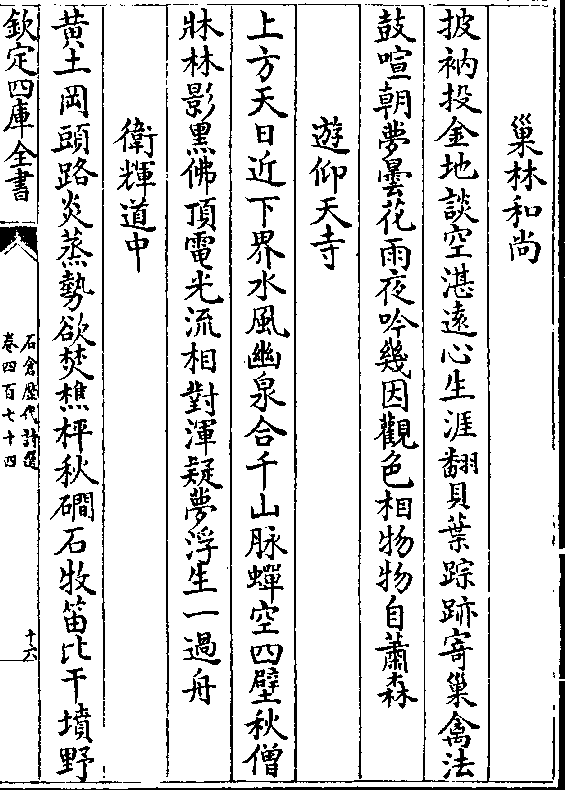 巢林和尚
披衲投金地談空湛遠心生涯翻貝葉踪跡寄巢禽法
鼓喧朝夢曇花雨夜吟幾因觀色相物物自蕭森
遊仰天寺
上方天日近下界水風幽泉合千山脉蟬空四壁秋僧
牀林影黒佛頂電光流相對渾疑夢浮生一過舟
衛輝道中
黄土岡頭路炎蒸勢欲焚樵枰秋磵石牧笛比干墳野
欽定四庫全書
石倉歴代詩選
卷四百七十四
十六